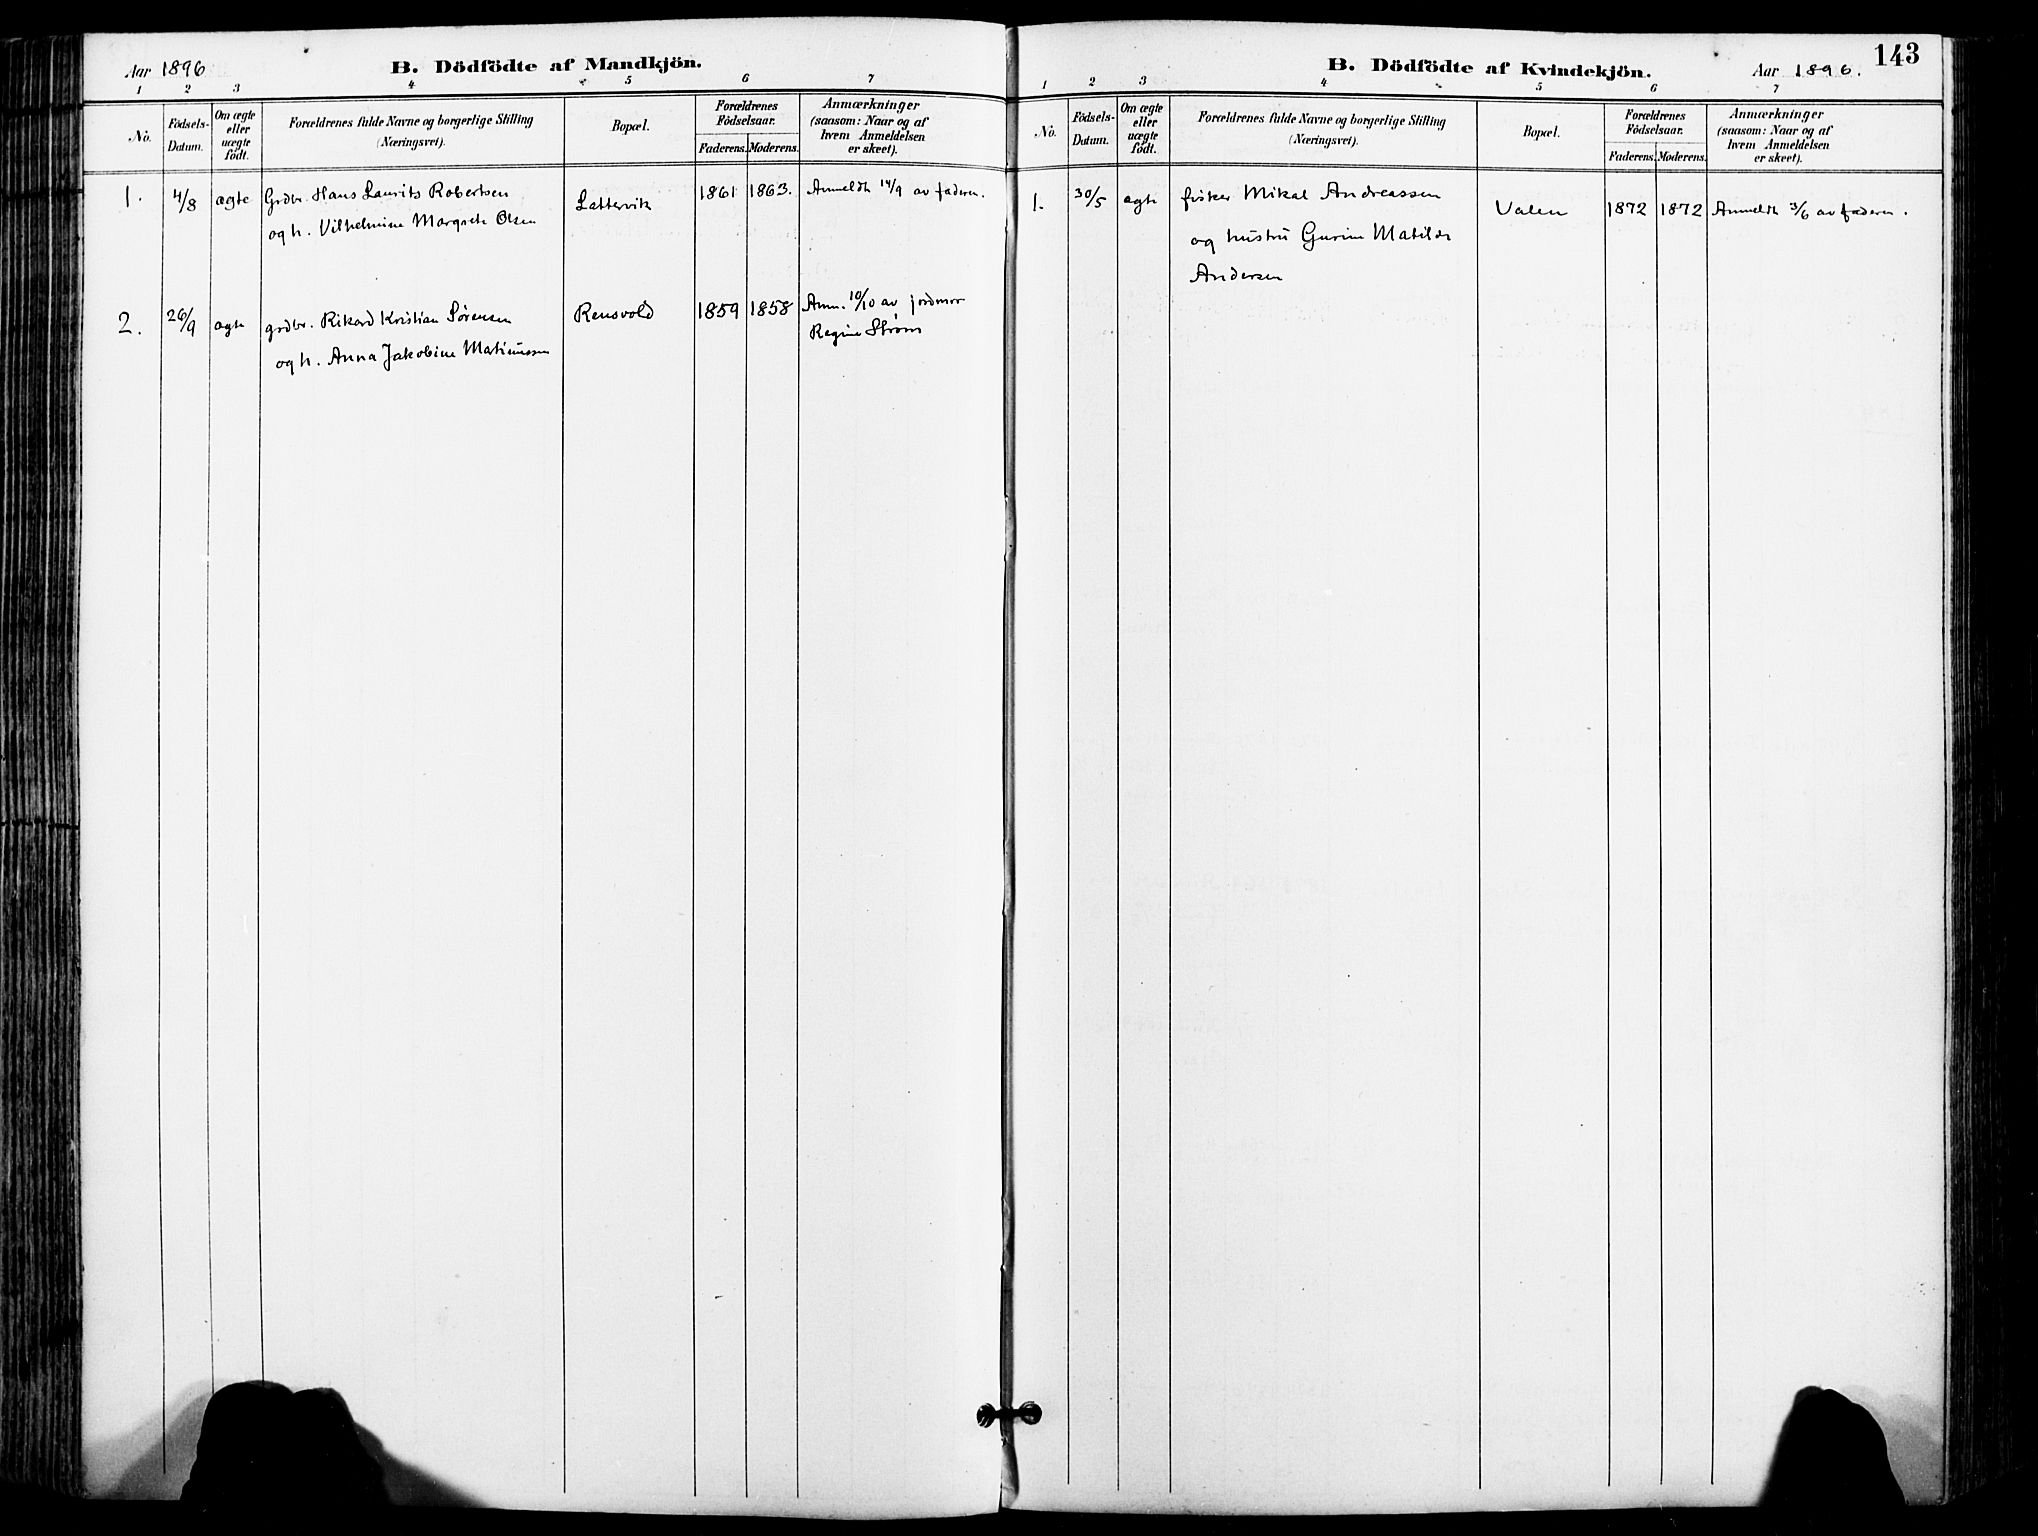 Aar 1896
B. Dödfödte af Mandkjön.
1 2 3 4 5 6 7
No.
Födsels-
Datum.
Om ægte
eller
uægte
födt.
Forældrenes fulde Navne og borgerlige Stilling
(Næringsvei).
Bopæl.
Forældrenes
Födselsaar.
Faderens. Moderens.
Anmærkninger
(saasom: Naar og af
hvem Anmeldelsen
er skeet).
1. 4/8 ægte Grdbr. Hans Laurits Robertsen Lattervik 1861 1863. Anmeldt 14/9 av faderen.
og h. Vilhelmine Margrete Olsen
2. 26/9 ægte grdbr. Rikard Kristian Sørensen Rensvold 1859 1858 Anm. 10/10 av jordmor
Regine Strøm
og h. Anna Jakobine Matinussen
143
B. Dödfödte af Kvindekjön.
Aar 1896.
1 2 3 4 5 6 7
No.
Födsels-
Datum.
Om ægte
eller
uægte
födt.
Forældrenes fulde Navne og borgerlige Stilling
(Næringsvei).
Bopæl.
Forældrenes
Födselsaar.
Faderens. Moderens.
Anmærkninger
(saasom: Naar og af
hvem Anmeldelsen
er skeet).
1. 30/5 ægte fisker Mikal Andreassen Valen 1872 1872 Anmeldt 3/6 av faderen.
og hustru Gurine Matilde
Andersen